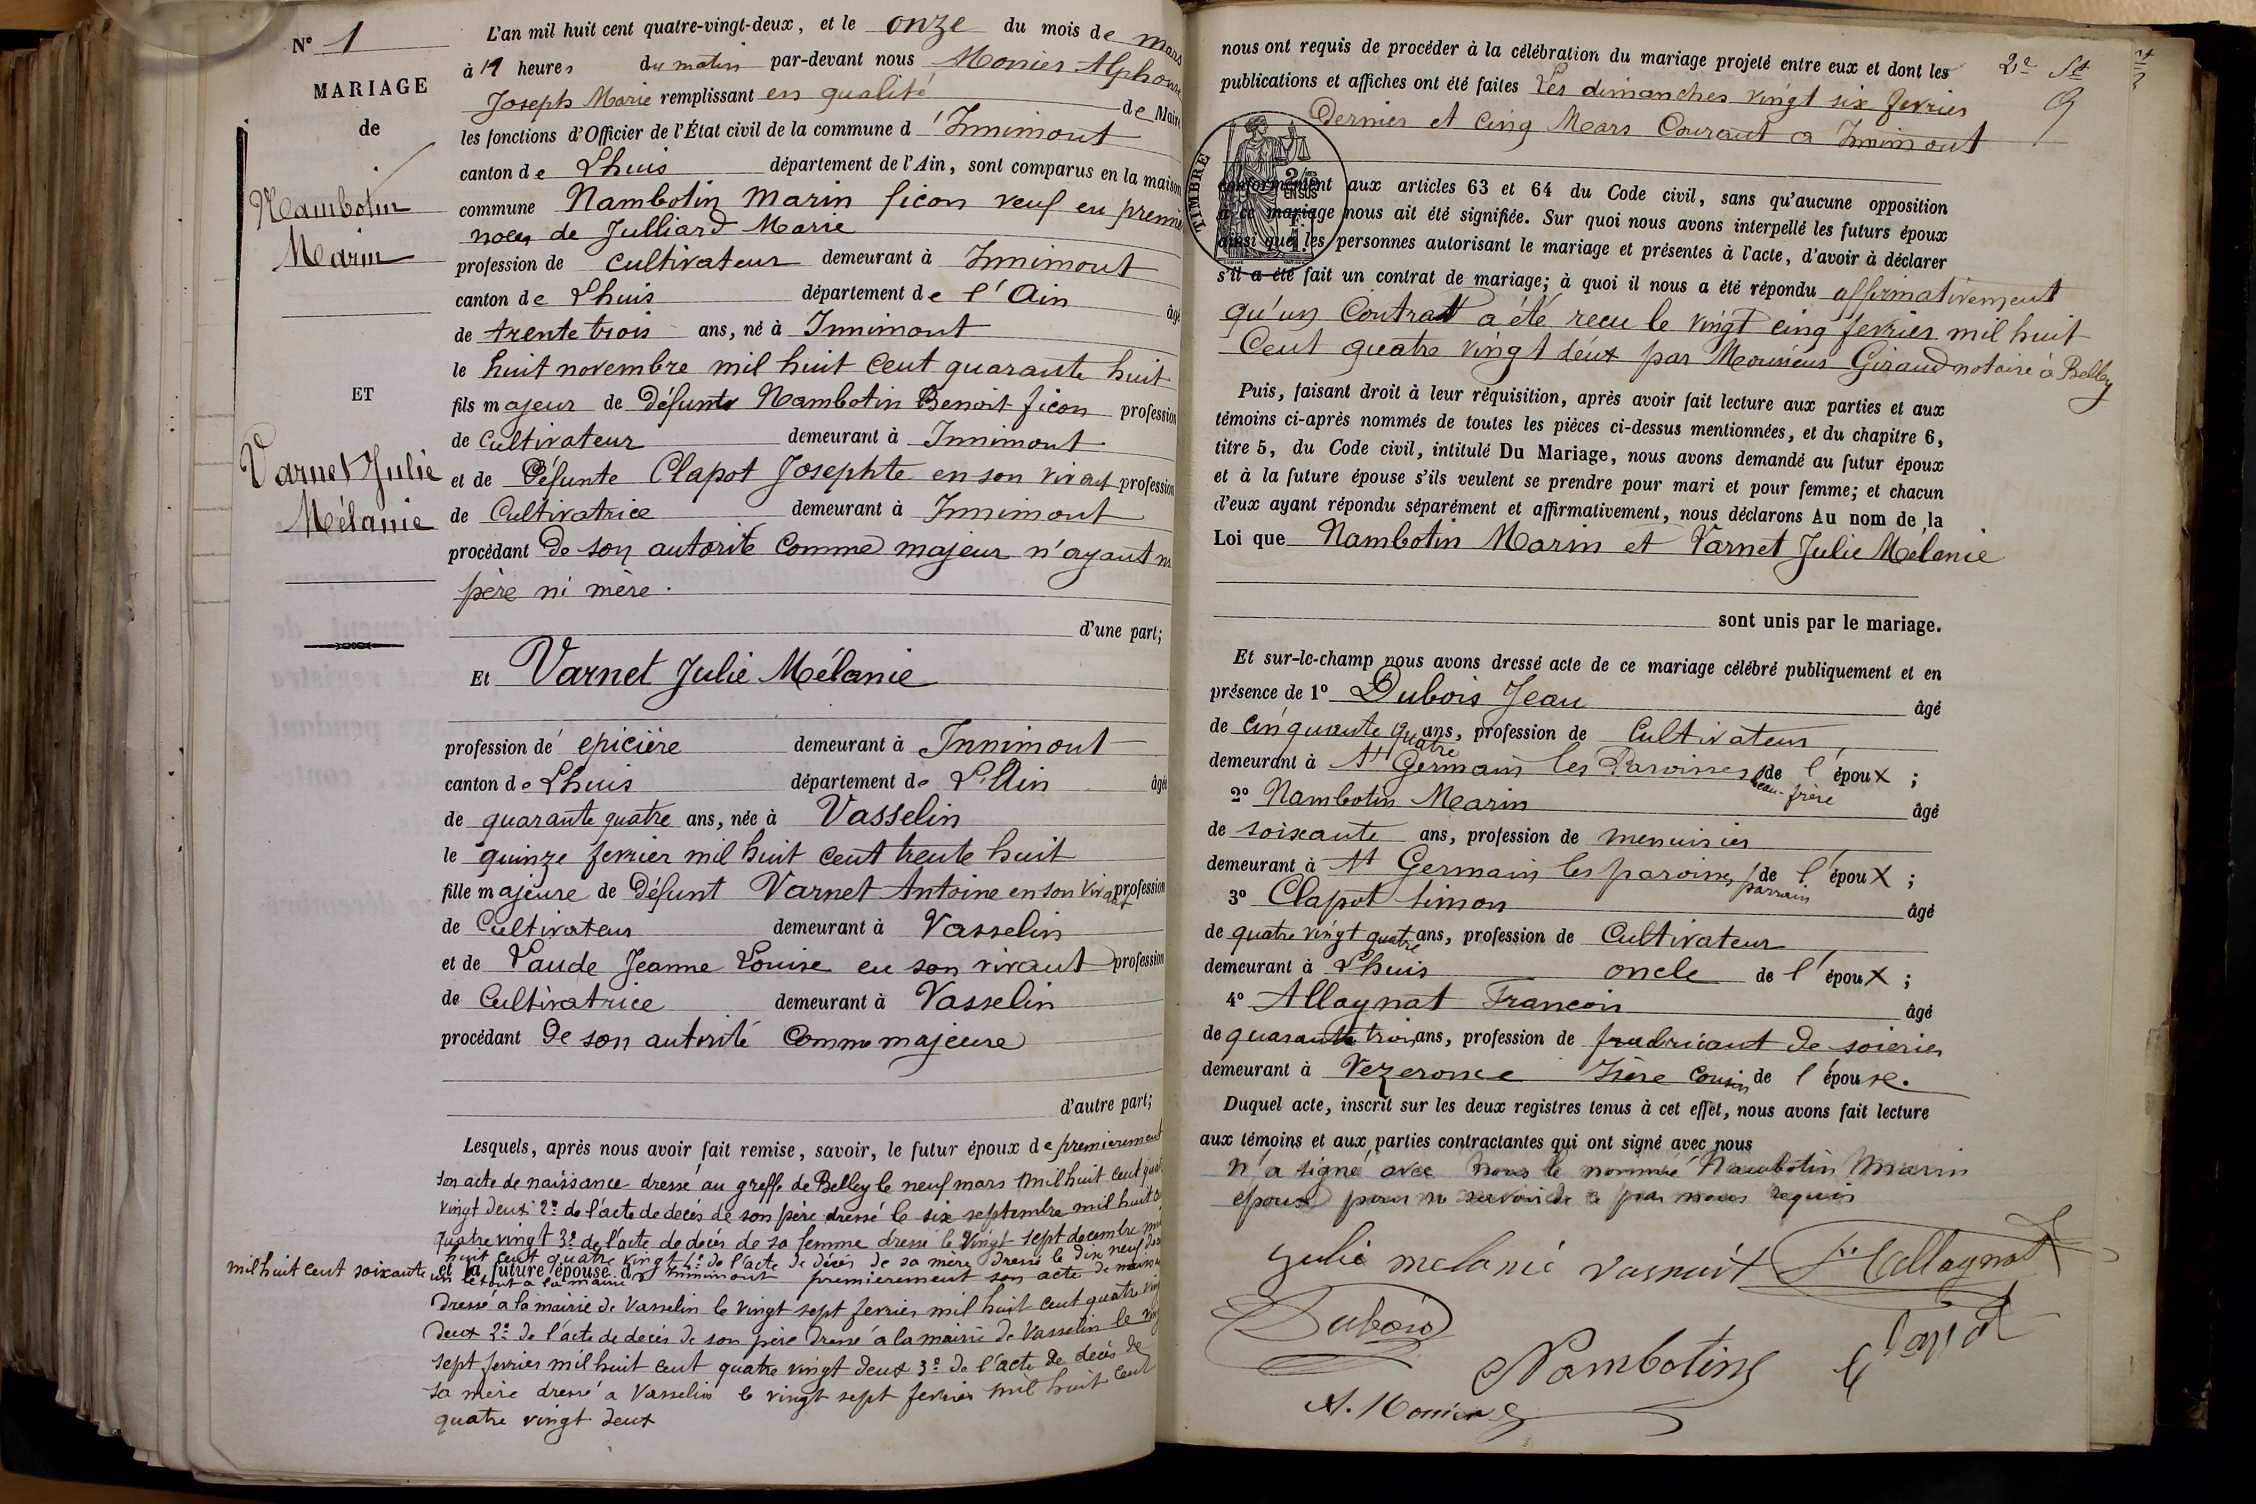 N° 1
MARIAGE
de
Nambotin
Marin
ET
Varnet Julie
Mélanie
L'an mil huit cent quatre-vingt-deux, et le onze du mois de mars
à heures du matin par-devant nous Monier Alphonse
Joseph Marie remplissant en qualité de Maire
les fonctions d'Officier de l'État civil de la commune d'Innimont
canton de Lhuis département de l'Ain, sont comparus en la maison
commune Nambotin Marin ficon veuf en premie
noces de Julliard Marie
profession de cultivateur demeurant à Innimont
canton de Lhuis département de l'Ain âgé
de trente trois ans, né à Innimont
le huit novembre mil huit cent quarante huit
fils majeur de Défunt Nambotin Benoit ficon profession
de Cultivateur demeurant à Innimont
et de Défunte Clapot Josephte en son vivant profession
de Cultivatrice demeurant à Innimont
procédant De son autorité comme majeur n'ayant ni
père ni mère.
d'une part;
Et Varnet Julie Mélanie
profession de épicière demeurant à Innimont
canton de Lhuis département de L'Ain âgée
de quarante quatre ans, née à Vasselin
le quinze fevrier mil huit cent trente huit
fille majeure de Défunt Varnet Antoine en son vivant profession
de Cultivateur demeurant à Vasselin
et de Vaude Jeanne Louise en son vivant profession
de Cultivatrice demeurant à Vasselin
procédant De son autorité Comme majeure
d'autre part;
Lesquels, après nous avoir fait remise, savoir, le futur époux de premierement
son acte de naissance dressé au greffe de Belley le neuf mars mil huit cent quatre
vingt deux 2° de l'acte de decès de son père dressé le six septembre mil huit
quatre vingt 3° de l'acte de decès de sa femme dressé le vingt sept decembre mil
huit cent quatre vingt 4° de l'acte de décès de sa mère dressé le dix neuf
mil huit cent soixante un le tout à la mairie d'Innimont
et la future épouse de premierement son acte de
dressé à la mairie de Vasselin le vingt sept fevrier mil huit cent quatre vingt
deux 2° de l'acte de decès de son père dressé à la mairie de Vasselin le vingt
sept fevrier mil huit cent quatre vingt deux 3° de l'acte de decès de
sa mère dressé a Vasselin le vingt sept fevrier mil huit cent
quatre vingt deux
nous ont requis de procéder à la célébration du mariage projeté entre eux et dont les
publications et affiches ont été faites Les dimanches vingt six fevrier
Dernier et cinq Mars Courant a Innimont
TIMBRE
2/10
EN SUS
conformément aux articles 63 et 64 du Code civil, sans qu'aucune opposition
à ce mariage nous ait été signifiée. Sur quoi nous avons interpellé les futurs époux
ainsi que les personnes autorisant le mariage et présentes à l'acte, d'avoir à déclarer
s'il a été fait un contrat de mariage; à quoi il nous a été répondu affirmativement
qu'un Contrat a été recu le vingt cinq fevrier mil huit
Cent quatre vingt deux par Monsieur Giraud notaire à Belley
Puis, faisant droit à leur réquisition, après avoir fait lecture aux parties et aux
témoins ci-après nommés de toutes les pièces ci-dessus mentionnées, et du chapitre 6,
titre 5, du Code civil, intitulé Du Mariage, nous avons demandé au futur époux
et à la future épouse s'ils veulent se prendre pour mari et pour femme; et chacun
d'eux ayant répondu séparément et affirmativement, nous déclarons Au nom de la
Loi que Nambotin Marin et Varnet Julie Mélanie
sont unis par le mariage.
Et sur-le-champ nous avons dressé acte de ce mariage célébré publiquement et en
présence de 1° Dubois Jean âgé
de cinquante quatre ans, profession de Cultivateur
demeurant à St Germain les Paroisses beau-frère de l'époux;
2° Nambotin Marin âgé
de soixante ans, profession de menuisier
demeurant à St Germain les paroisses parrain de l'époux;
3° Clapot Simon âgé
de quatre vingt quatre ans, profession de Cultivateur
demeurant à Lhuis oncle de l'époux;
4° Allagnat Francois âgé
de quarante trois ans, profession de fabricant de soieries
demeurant à Vezeronce Isère Cousin de l'épouse.
Duquel acte, inscrit sur les deux registres tenus à cet effet, nous avons fait lecture
aux témoins et aux parties contractantes qui ont signé avec nous
n'a signé avec nous le nommé Nambotin Marin
époux pour ne savoir de ce par nous requis
Julie melanie varnait F. Allagnat
Dubois
Nambotin
A. Monier